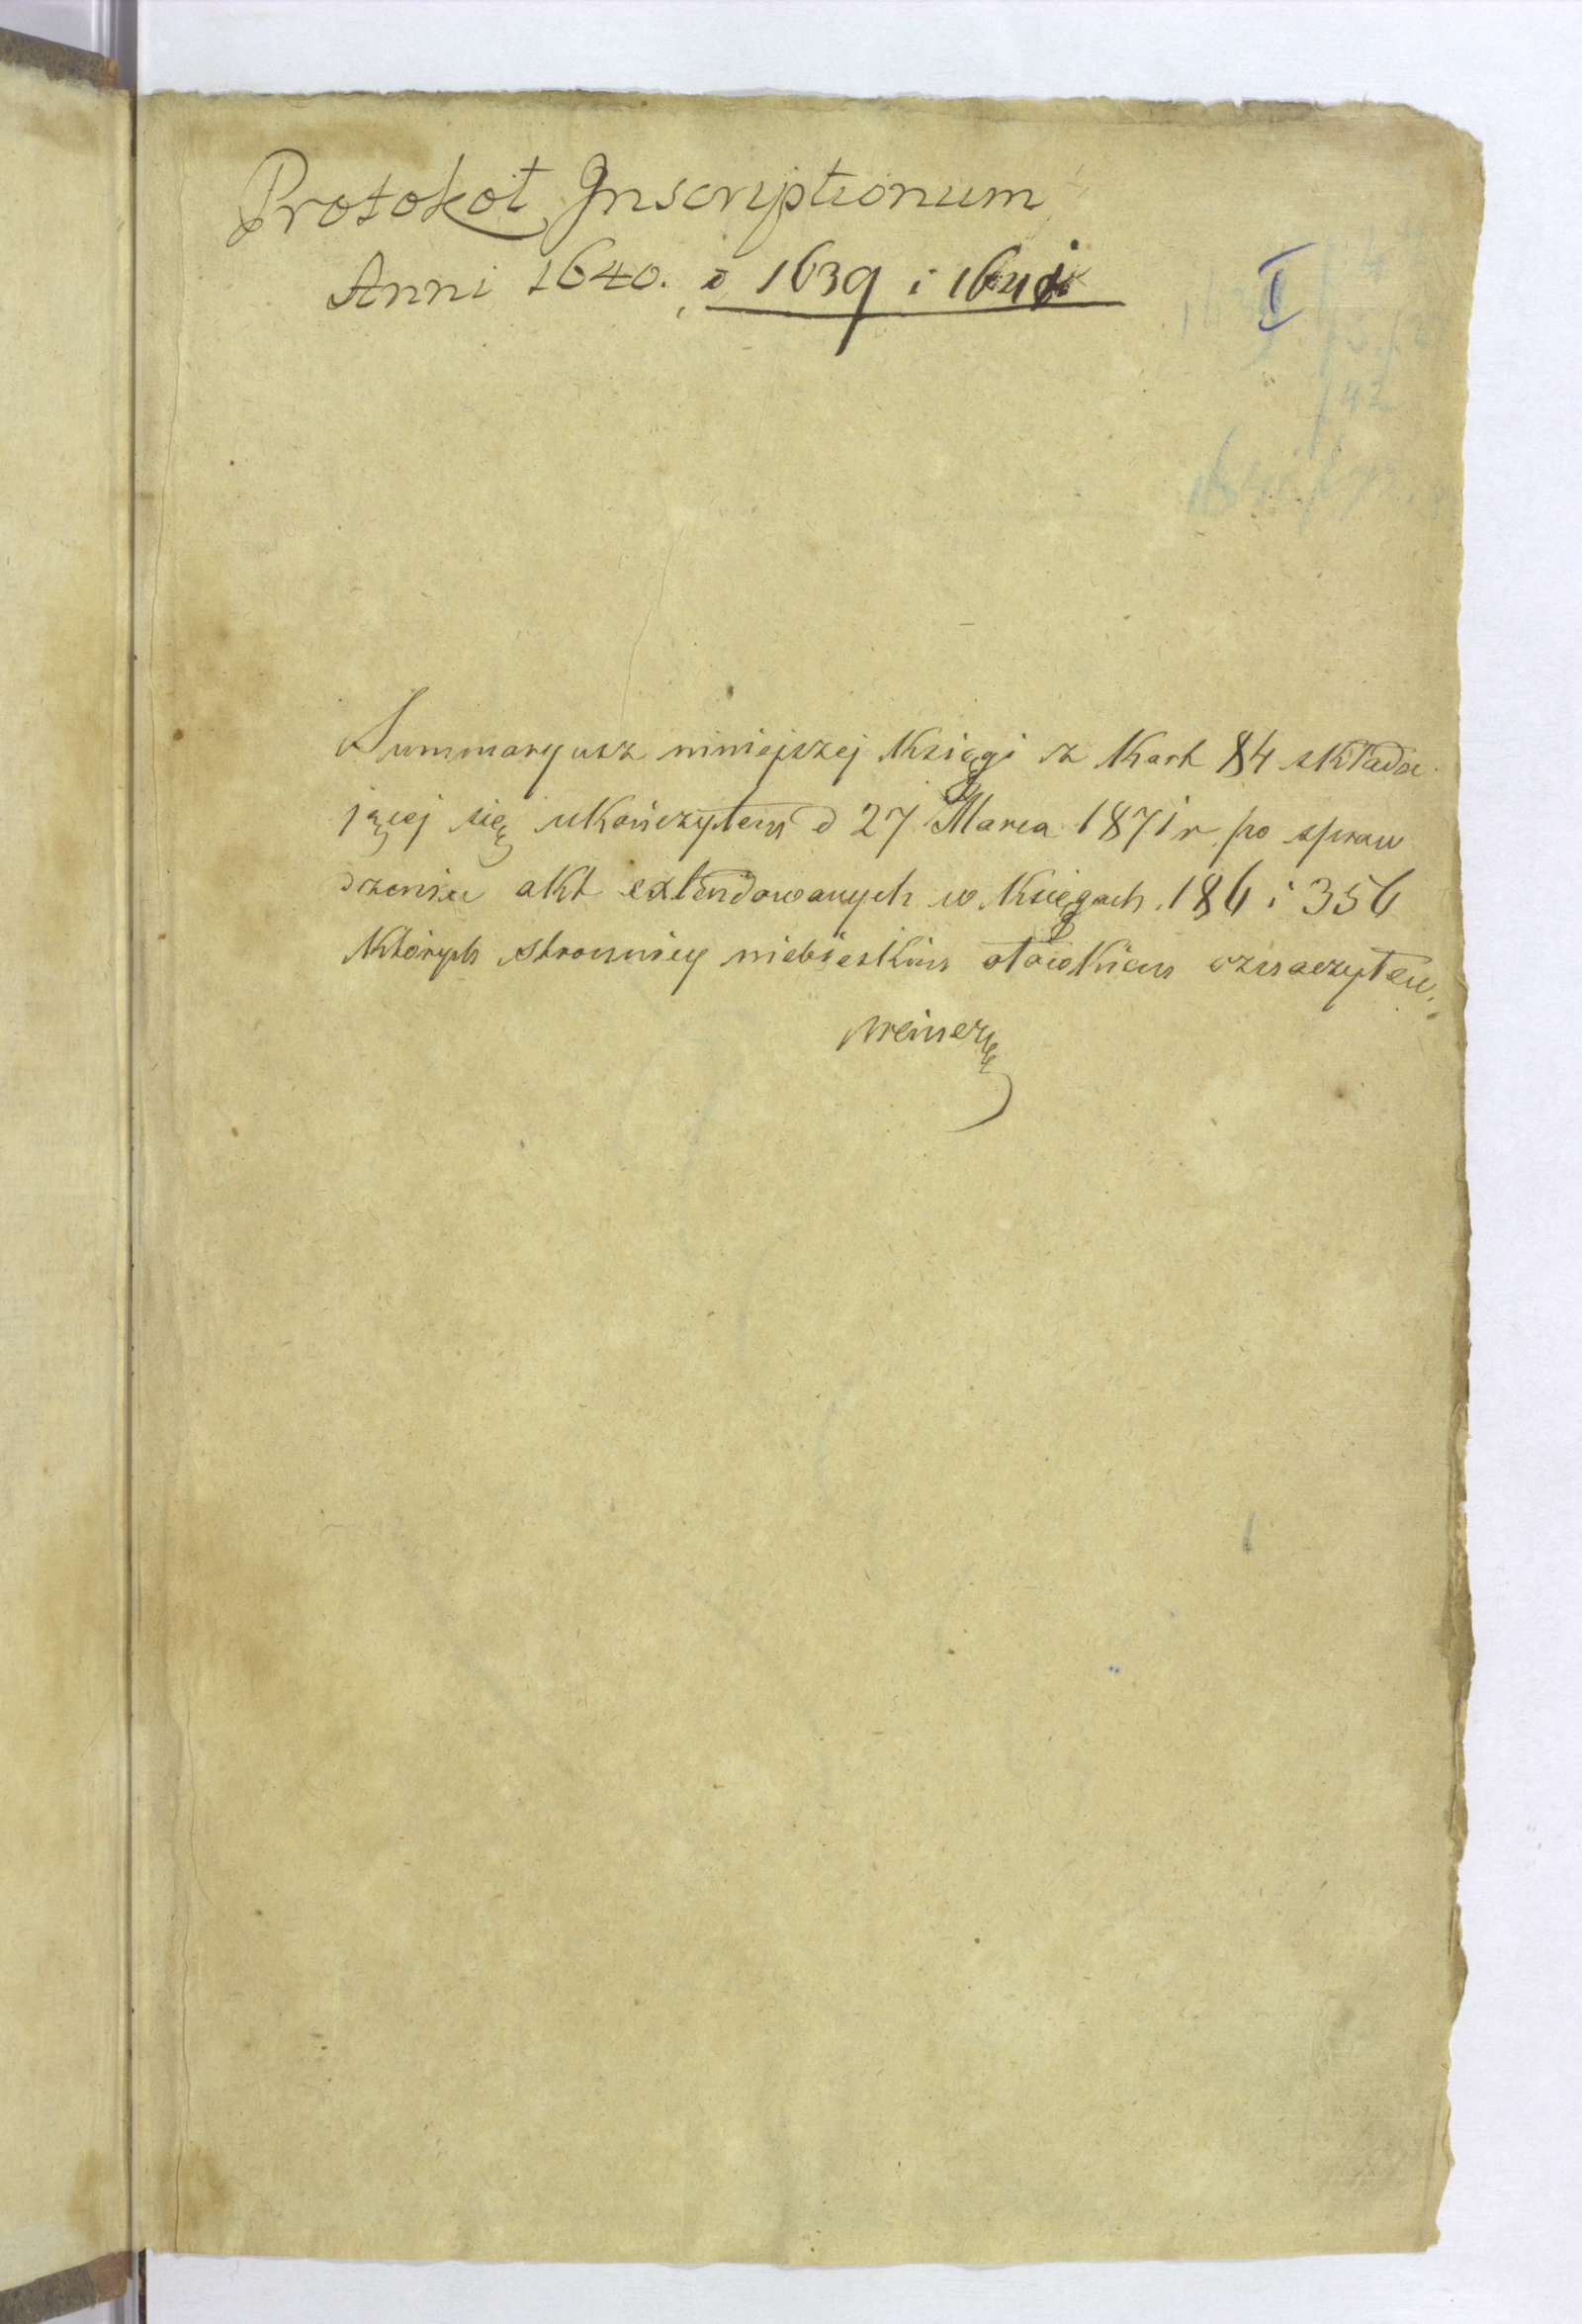 Protokoł Inscriptionum
Anni 1640. i 1639 i 1641
I
Summaryusz niniejszej Księgi z Kart 84 składa
jącej się ukończyłem d 27 Marca 1871 r. po spraw
dzeniu akt extendowanych w Księgach 186 i 356
których stronnicy niebieskim ołówkiem oznaczyłem.